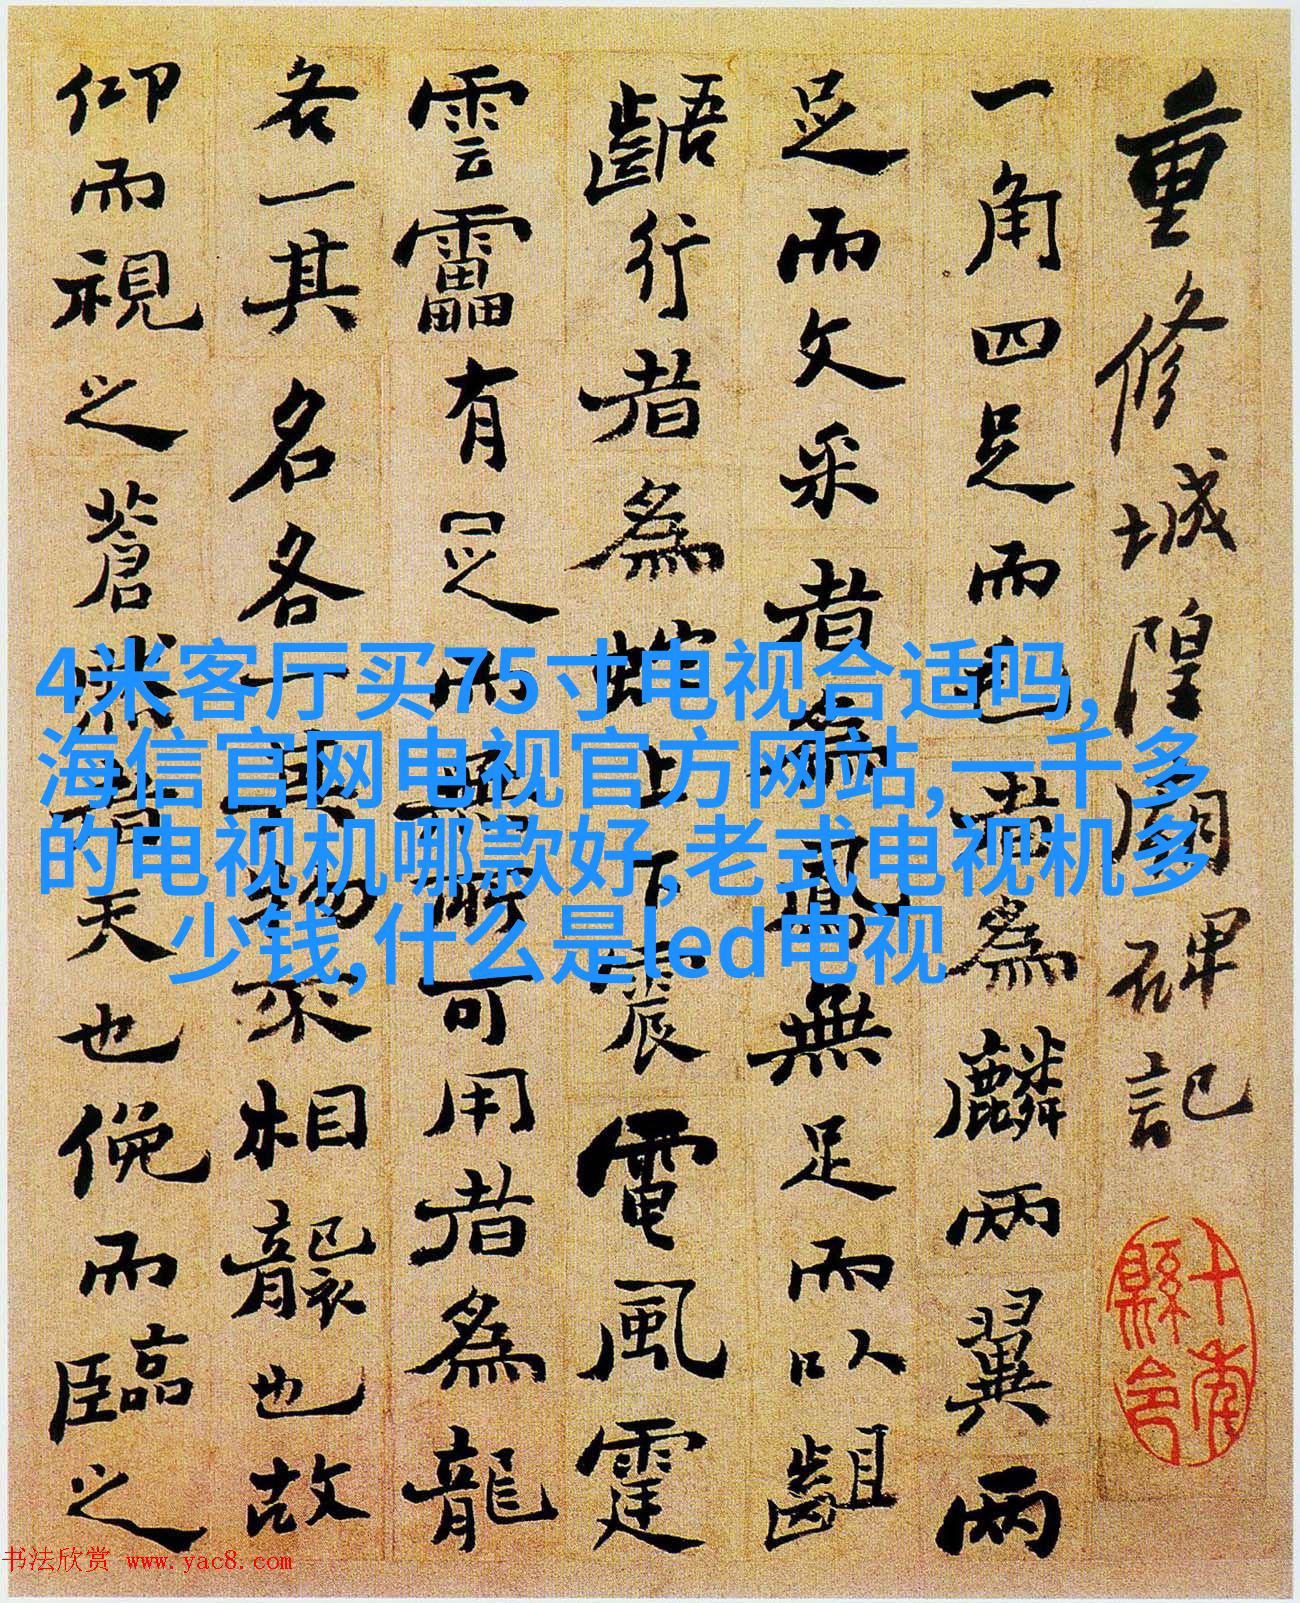 重修城隍廟碑記
一角四足而毛者為麟兩翼兩
足而文采者為鳳無足而以齟
齬行者為蛇上下震電風霆
雲靁有足而無所可用者為龍
各一其名各一其物不相襲也故
仰而視之蒼然者天也俛而臨之
4米客厅买75寸电视合适吗,
海信官网电视官方网站,一千多
的电视机哪款好,老式电视机多
少钱,什么是led电视
书法欣赏 www.yac8.com